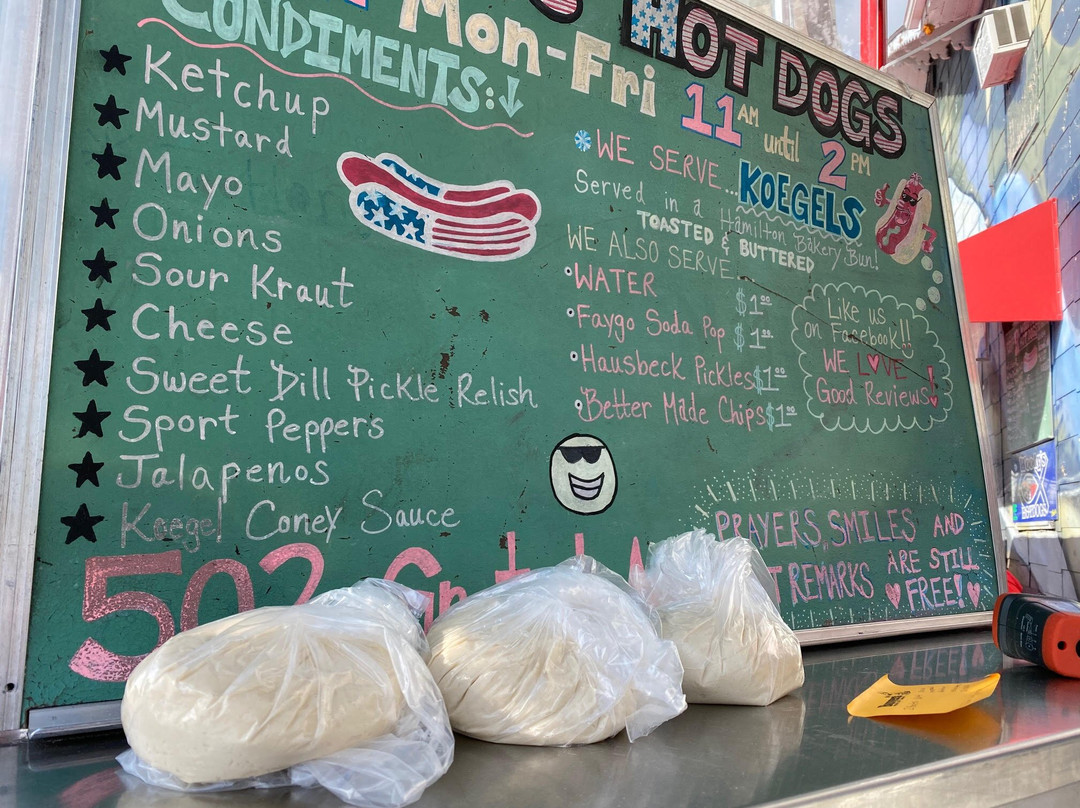 CONDIMENTS:↓
Ketchup
Mustard
Mayo
Onions
Sour Kraut
Cheese
Sweet Dill Pickle Relish
Sport Peppers
Jalapenos
Koegel Coney Sauce
Mon-Fri
HOT DOGS
11 AM until 2 PM
WE SERVE... KOEGELS
Served in a Hamilton Bakery Bun!
TOASTED & BUTTERED
WE ALSO SERVE...
WATER $1.00
Faygo Soda Pop $1.00
Hausbeck Pickles $1.00
Better Made Chips $1.00
Like us
on Facebook!!
WE L♥VE
Good Reviews!
PRAYERS, SMILES AND
REMARKS ARE STILL
♥FREE!♥
502